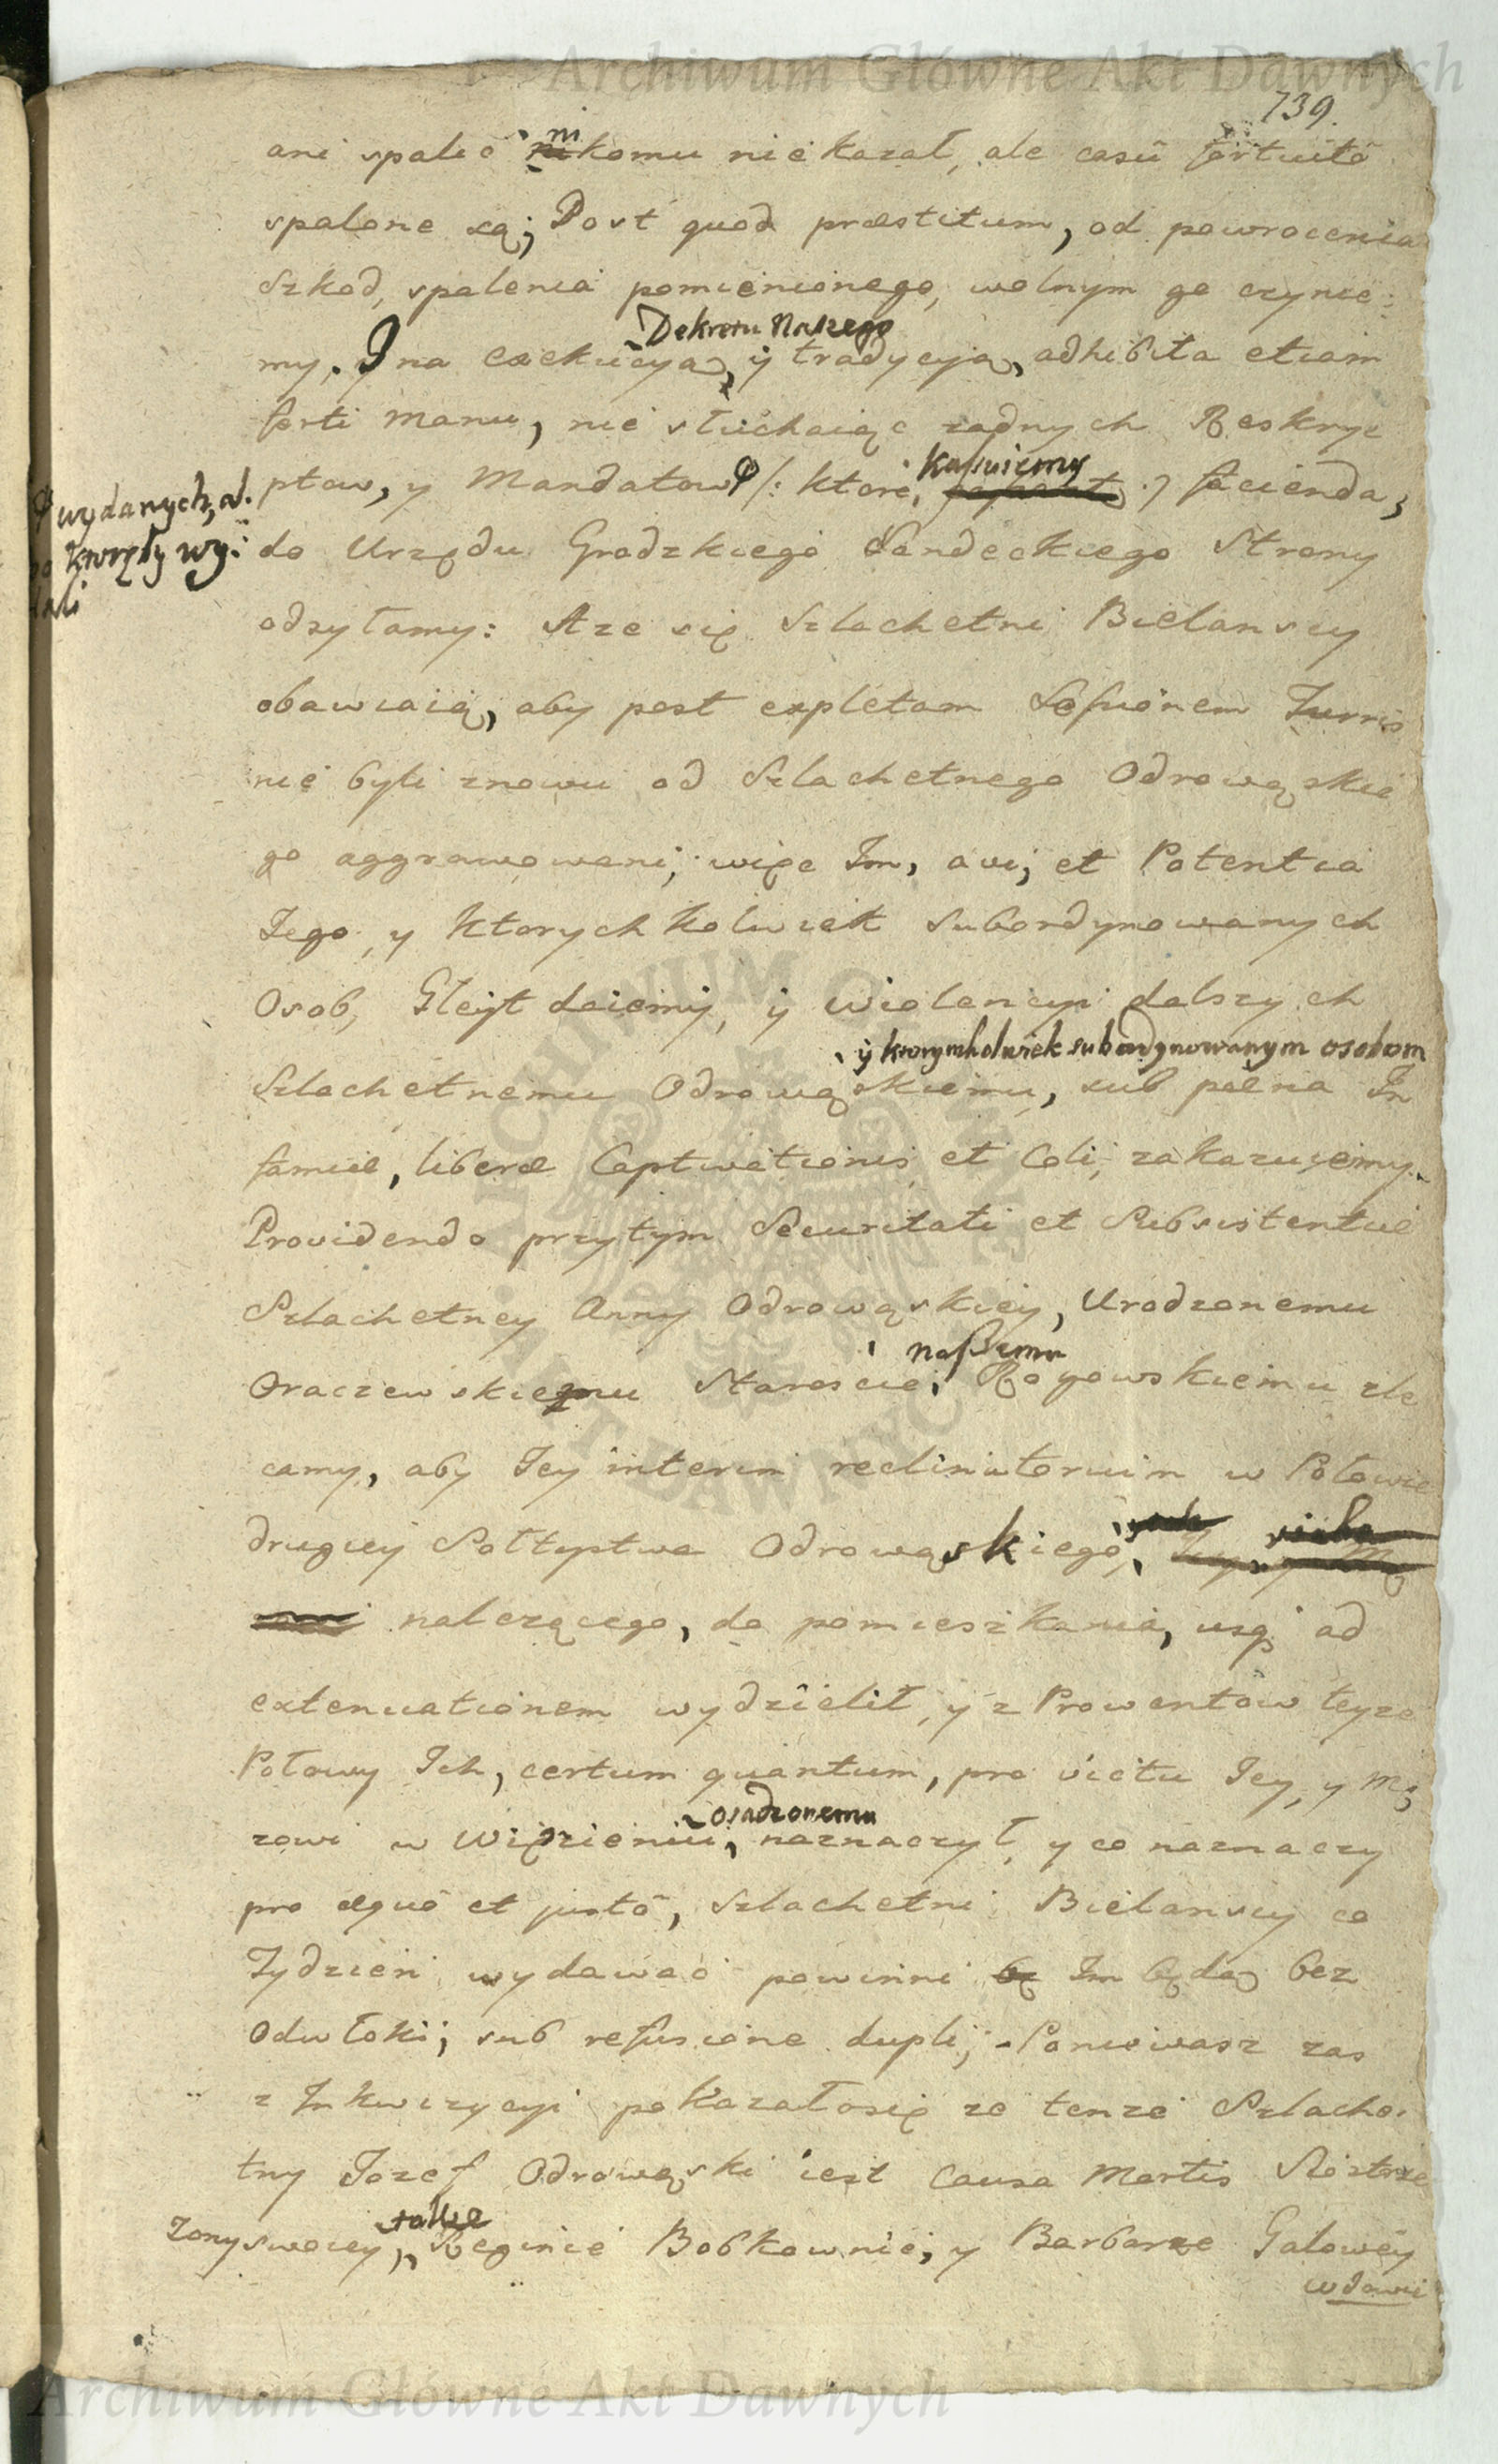 Archiwum Główne Akt Dawnych
739.
ani spalić nikomu nie kazał, ale casû fortuitô
spalone są; Post quod præstitum, od powrocenia
Szkod, spalenia pomienionego, wolnym go czynie:
Dekretu Naszego
my. I na exekucyą, y tradycyą, adhibita etiam
forti manu, nie słuchaiąc żadnych Reskryp
kassuiemy
ptow, y Mandatow /: ktore, :/ facienda,
wydanych, al.
bo kwryły wyi
dali
do Urzędu Grodzkiego Sandeckiego Strony
odsyłamy: A ze się Szlachetni Bielanscy
obawiaią, aby post expletam Sessionem Turris
nie byli znowu od Szlachetnego Odrowąskie
go aggrawowani; więc Im, a vi, et Potentia
Iego, y ktorychkolwiek Subordynowanych
Osob, Gleyt daiemy, y wiolencyi dalszych
y ktorymkolwiek subordynowanym osobom
Szlachetnemu Odrowąskiemu, sub pæna In
famiæ, liberæ Captivationis, et Coli, zakazuiemy.
Providendo przytym Securitati et Subsistentiæ
Szlachetney Anny Odrowąskiey, Urodzonemu
naszemu
Oraczewskiemu Staroscie, Rogowskiemu zle
camy, aby Iey interim reclinatorium w Połowie
drugiey Sołtystwa Odrowąskiego,
należącego, do pomieszkania, usq̃ ad
extenuationem wydzielił, y z Prowentow teyze
Połowy Ich, certum quantum, pro victu Iey, y Mę
osadzonemu
zowi w Więzieniu, naznaczył, y co naznaczy
pro æquô et justô, Szlachetni Bielanscy co
Tydzien wydawać powinni bę Im będą bez
Odwłoki, sub refusione dupli; Poniewasz zas
z Inkwizycyi pokazało się ze tenze Szlache:
tny Iozef Odrowąski iest Causa Mortis Siostrze
takze
Zony swoiey, Reginie Bobkownie, y Barbarze Galowey
wdowie
Archiwum Główne Akt Dawnych